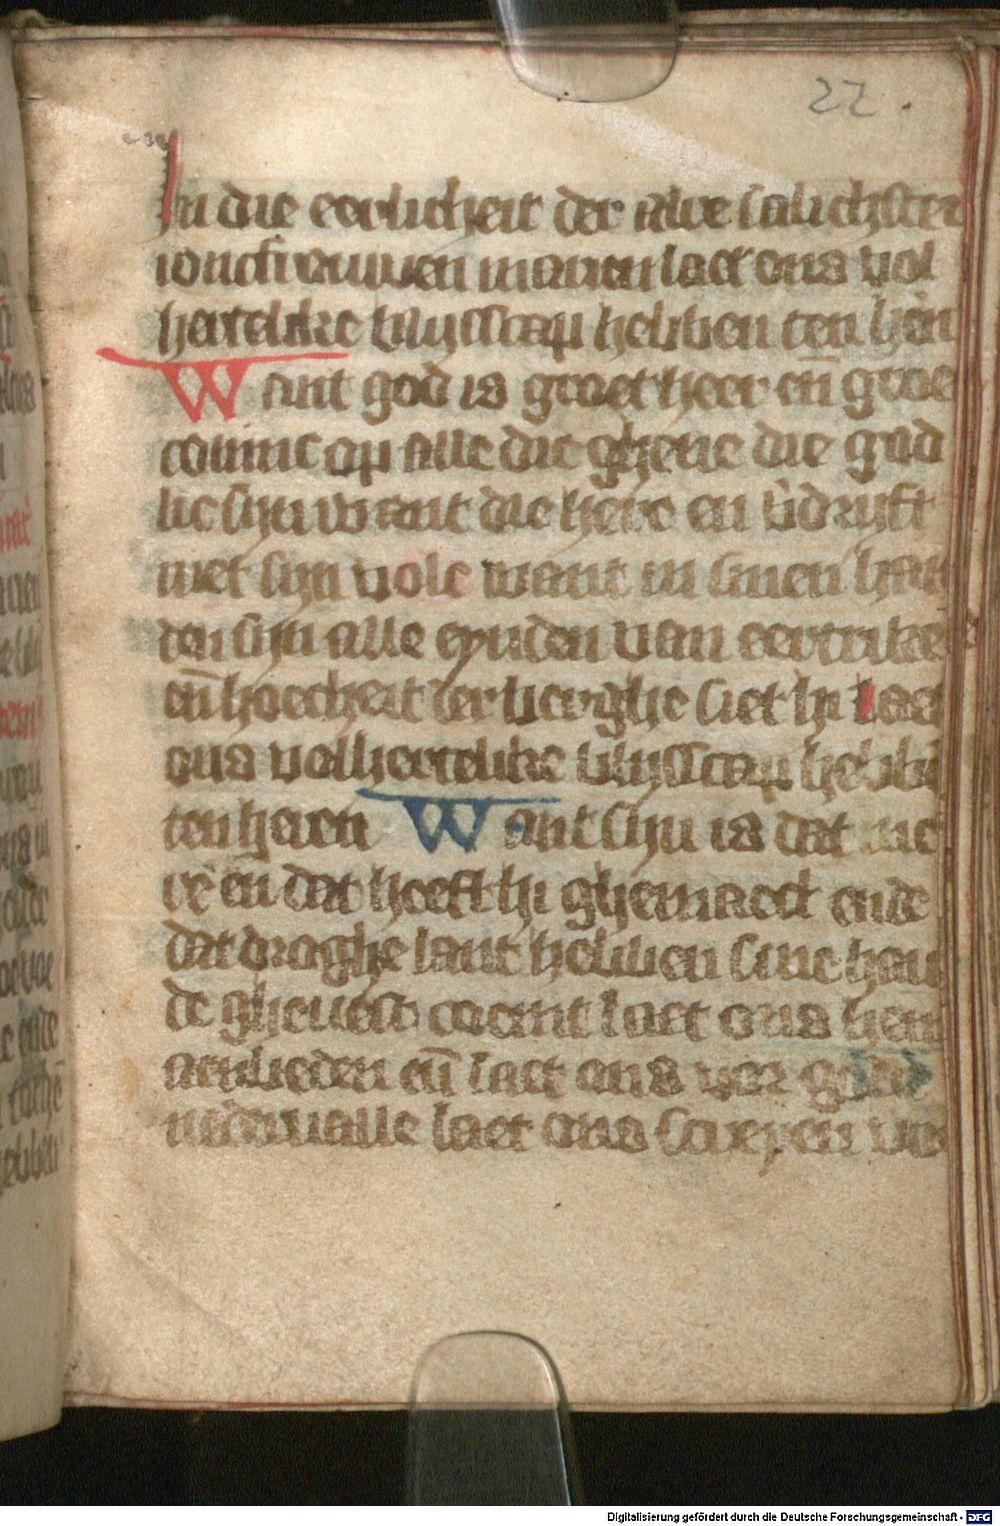 22
In die eerlicheit der alre salichster
ioncfrouwen marien laet ons vol
hertelike blijsscap hebben ten herē
Want god is groet heer eñ groet
coninc op alle die ghene die god
lic sijn want die here en v̄drijft
niet sijn volc want in sinen han
den sijn alle eynden van eertrike
eñ hoecheit der berghe siet hi Laet
ons volhertelike blijsscap hebbē
ten heren Want sijn is dat mer
eñ dat heeft hi ghemaect ende
dat droghe lant hebben sine han
de ghevest coemt laet ons hem
aenbeden eñ laet ons vor gode
nedervalle laet ons screyen vor
Digitalisierung gefördert durch die Deutsche Forschungsgemeinschaft - DFG